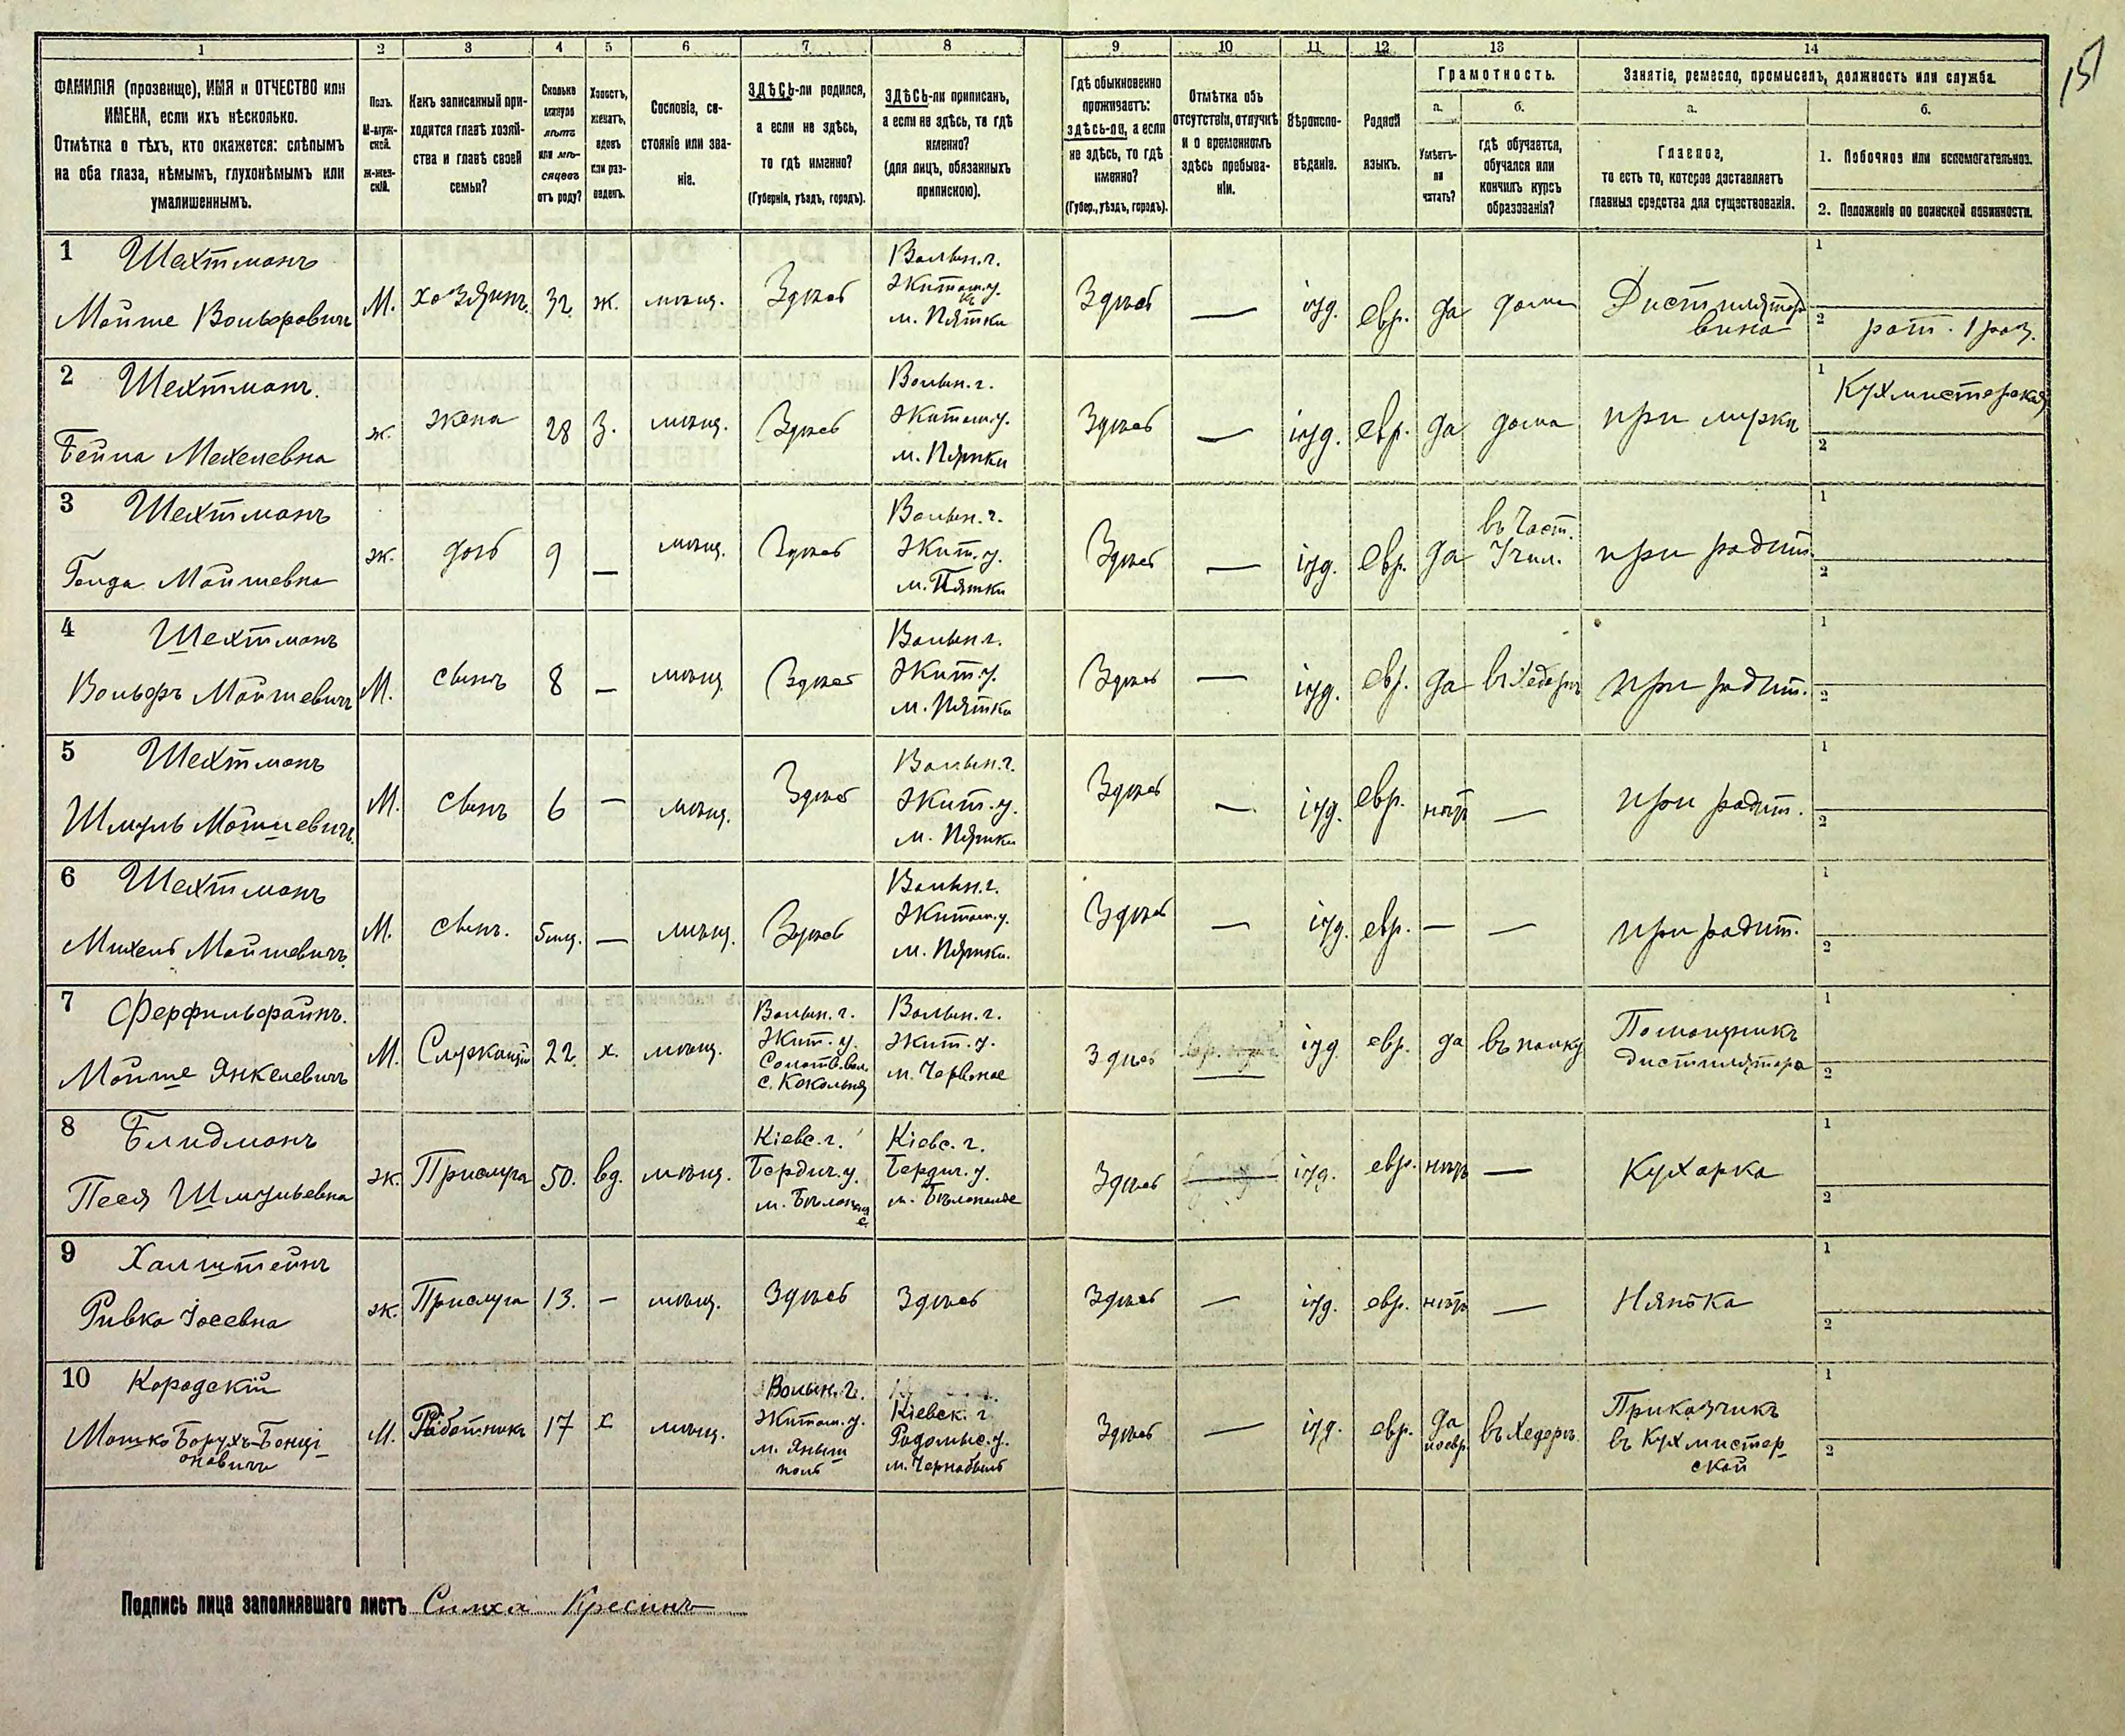 151
1 2 3 4 5 6 7 8 9 10 11 12 13 14
ФАМИЛІЯ (прозвище), ИМЯ и ОТЧЕСТВО или
ИМЕНА, если ихъ нѣсколько.
Отмѣтка о тѣхъ, кто окажется: слѣпымъ
на оба глаза, нѣмымъ, глухонѣмымъ или
умалишеннымъ.
Полъ.
М-муж-
ской.
ж-жен-
скій.
Какъ записанный при-
ходится главѣ хозяй-
ства и главѣ своей
семьи?
Сколько
минуло
лѣтъ
или мѣ-
сяцевъ
отъ роду?
Холостъ,
женатъ,
вдовъ
или раз-
веденъ.
Сословіе, со-
стояніе или зва-
ніе.
ЗДѢСЬ-ли родился,
а если не здѣсь,
то гдѣ именно?
(Губернія, уѣздъ, городъ).
ЗДѢСЬ-ли приписанъ,
а если не здѣсь, то гдѣ
именно?
(для лицъ, обязанныхъ
припискою).
Гдѣ обыкновенно
проживаетъ:
здѣсь-ли, а если
не здѣсь, то гдѣ
именно?
(Губер., уѣздъ, городъ).
Отмѣтка объ
отсутствіи, отлучкѣ
и о временномъ
здѣсь пребыва-
ніи.
Вѣроиспо-
вѣданіе.
Родной
языкъ.
Грамотность.
а.
Умѣетъ-
ли
читать?
б.
гдѣ обучается,
обучался или
кончилъ курсъ
образованія?
Занятіе, ремесло, промыселъ, должность или служба.
а.
Главное,
то есть то, которое доставляетъ
главныя средства для существованія.
б.
1. Побочное или вспомогательное.
2. Положеніе по воинской повинности.
1 Шехтманъ
Мойше Вольфовичъ
М. хозяинъ 32 ж. мѣщ. Здѣсь
Волын. г.
Житом. у.
м. Пятки
Здѣсь — іуд. евр. да дома
Дистилляторъ
вина
1
2 рат. 1 раз.
2 Шехтманъ.
Бейла Мехелевна
ж. жена 28 З. мѣщ. Здѣсь
Волын. г.
Житом. у.
м. Пятки
Здѣсь — іуд. евр. да дома при мужѣ
1 Кухмистерская
2
3 Шехтманъ
Голда Мойшевна
ж. дочь 9 — мѣщ. Здѣсь
Волын. г.
Жит. у.
м. Пятки
Здѣсь — іуд. евр. да
въ Част.
Учил.
при родит.
1
2
4 Шехтманъ
Вольфъ Мойшевичъ
М. сынъ 8 — мѣщ. Здѣсь
Волын. г.
Жит. у.
м. Пятки
Здѣсь — іуд. евр. да въ Хедерѣ при родит.
1
2
5 Шехтманъ
Шмуль Мойшевичъ
М. сынъ 6 — мѣщ. Здѣсь
Волын. г.
Жит. у.
м. Пятки
Здѣсь — іуд. евр. нѣтъ — при родит.
1
2
6 Шехтманъ
Михель Мойшевичъ
М. сынъ. 5 мѣц. — мѣщ. Здѣсь
Волын. г.
Житом. у.
м. Пятки.
Здѣсь — іуд. евр. — — при родит.
1
2
7 Ферфильфайнъ.
Мойше Янкелевичъ
М. Служащій 22 х. мѣщ.
Волын. г.
Жит. у.
с. Кокольня
Волын. г.
Жит. у.
м. Червоное
Здѣсь — іуд. евр. да въ полку
Помощникъ
дистиллятора
1
2
8 Блидманъ
Песя Шмульевна
ж. Прислуга 50. вд. мѣщ.
Кіевс. г.
Бердич. у.
м. Бѣлополье
Кіевс. г.
Бердич. у.
м. Бѣлополье
Здѣсь іуд. евр. нѣтъ — Кухарка
1
2
9 Халштейнъ
Ривка Іосевна
ж. Прислуга 13. — мѣщ. Здѣсь Здѣсь Здѣсь — іуд. евр. нѣтъ — Нянька
1
2
10 Городскій
Мошко Борухъ-Бенці-
оновичъ
М. Работникъ 17 х мѣщ.
Волын. г.
Житом. у.
м. Яныш
поль
Кіевск. г.
Радомыс. у.
м. Чернобыль
Здѣсь — іуд. евр.
да
по евр.
въ Хедерѣ.
Приказчикъ
въ Кухмистер-
ской
1
2
Подпись лица заполнявшаго листъ Симха Кресинъ